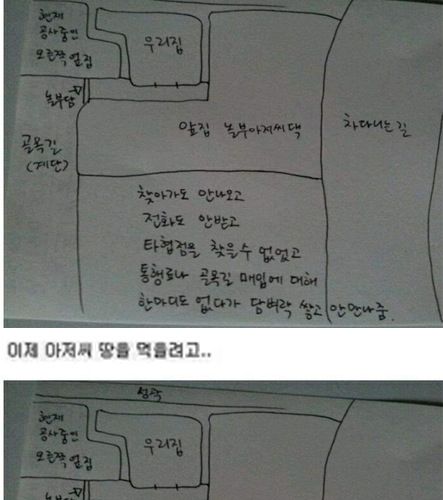 현재
공사중인
오른쪽 옆집
우리집
놀부담
앞집 놀부아저씨댁
차다니는길
골목길
(계단)
찾아가도 안나오고
전화도 안받고
타협점을 찾을수 없었고
통행료나 골목길 매입에 대해
한마디도 없다가 담벼락 쌓고 안만나줌.
이제 아저씨 땅을 먹을려고..
성곽
현재
공사중인
오른쪽 옆집
우리집